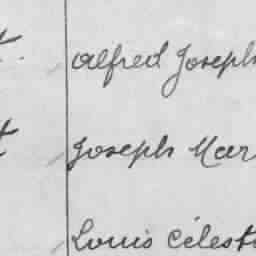 t. Alfred Joseph
t Joseph Mar
Louis Célest